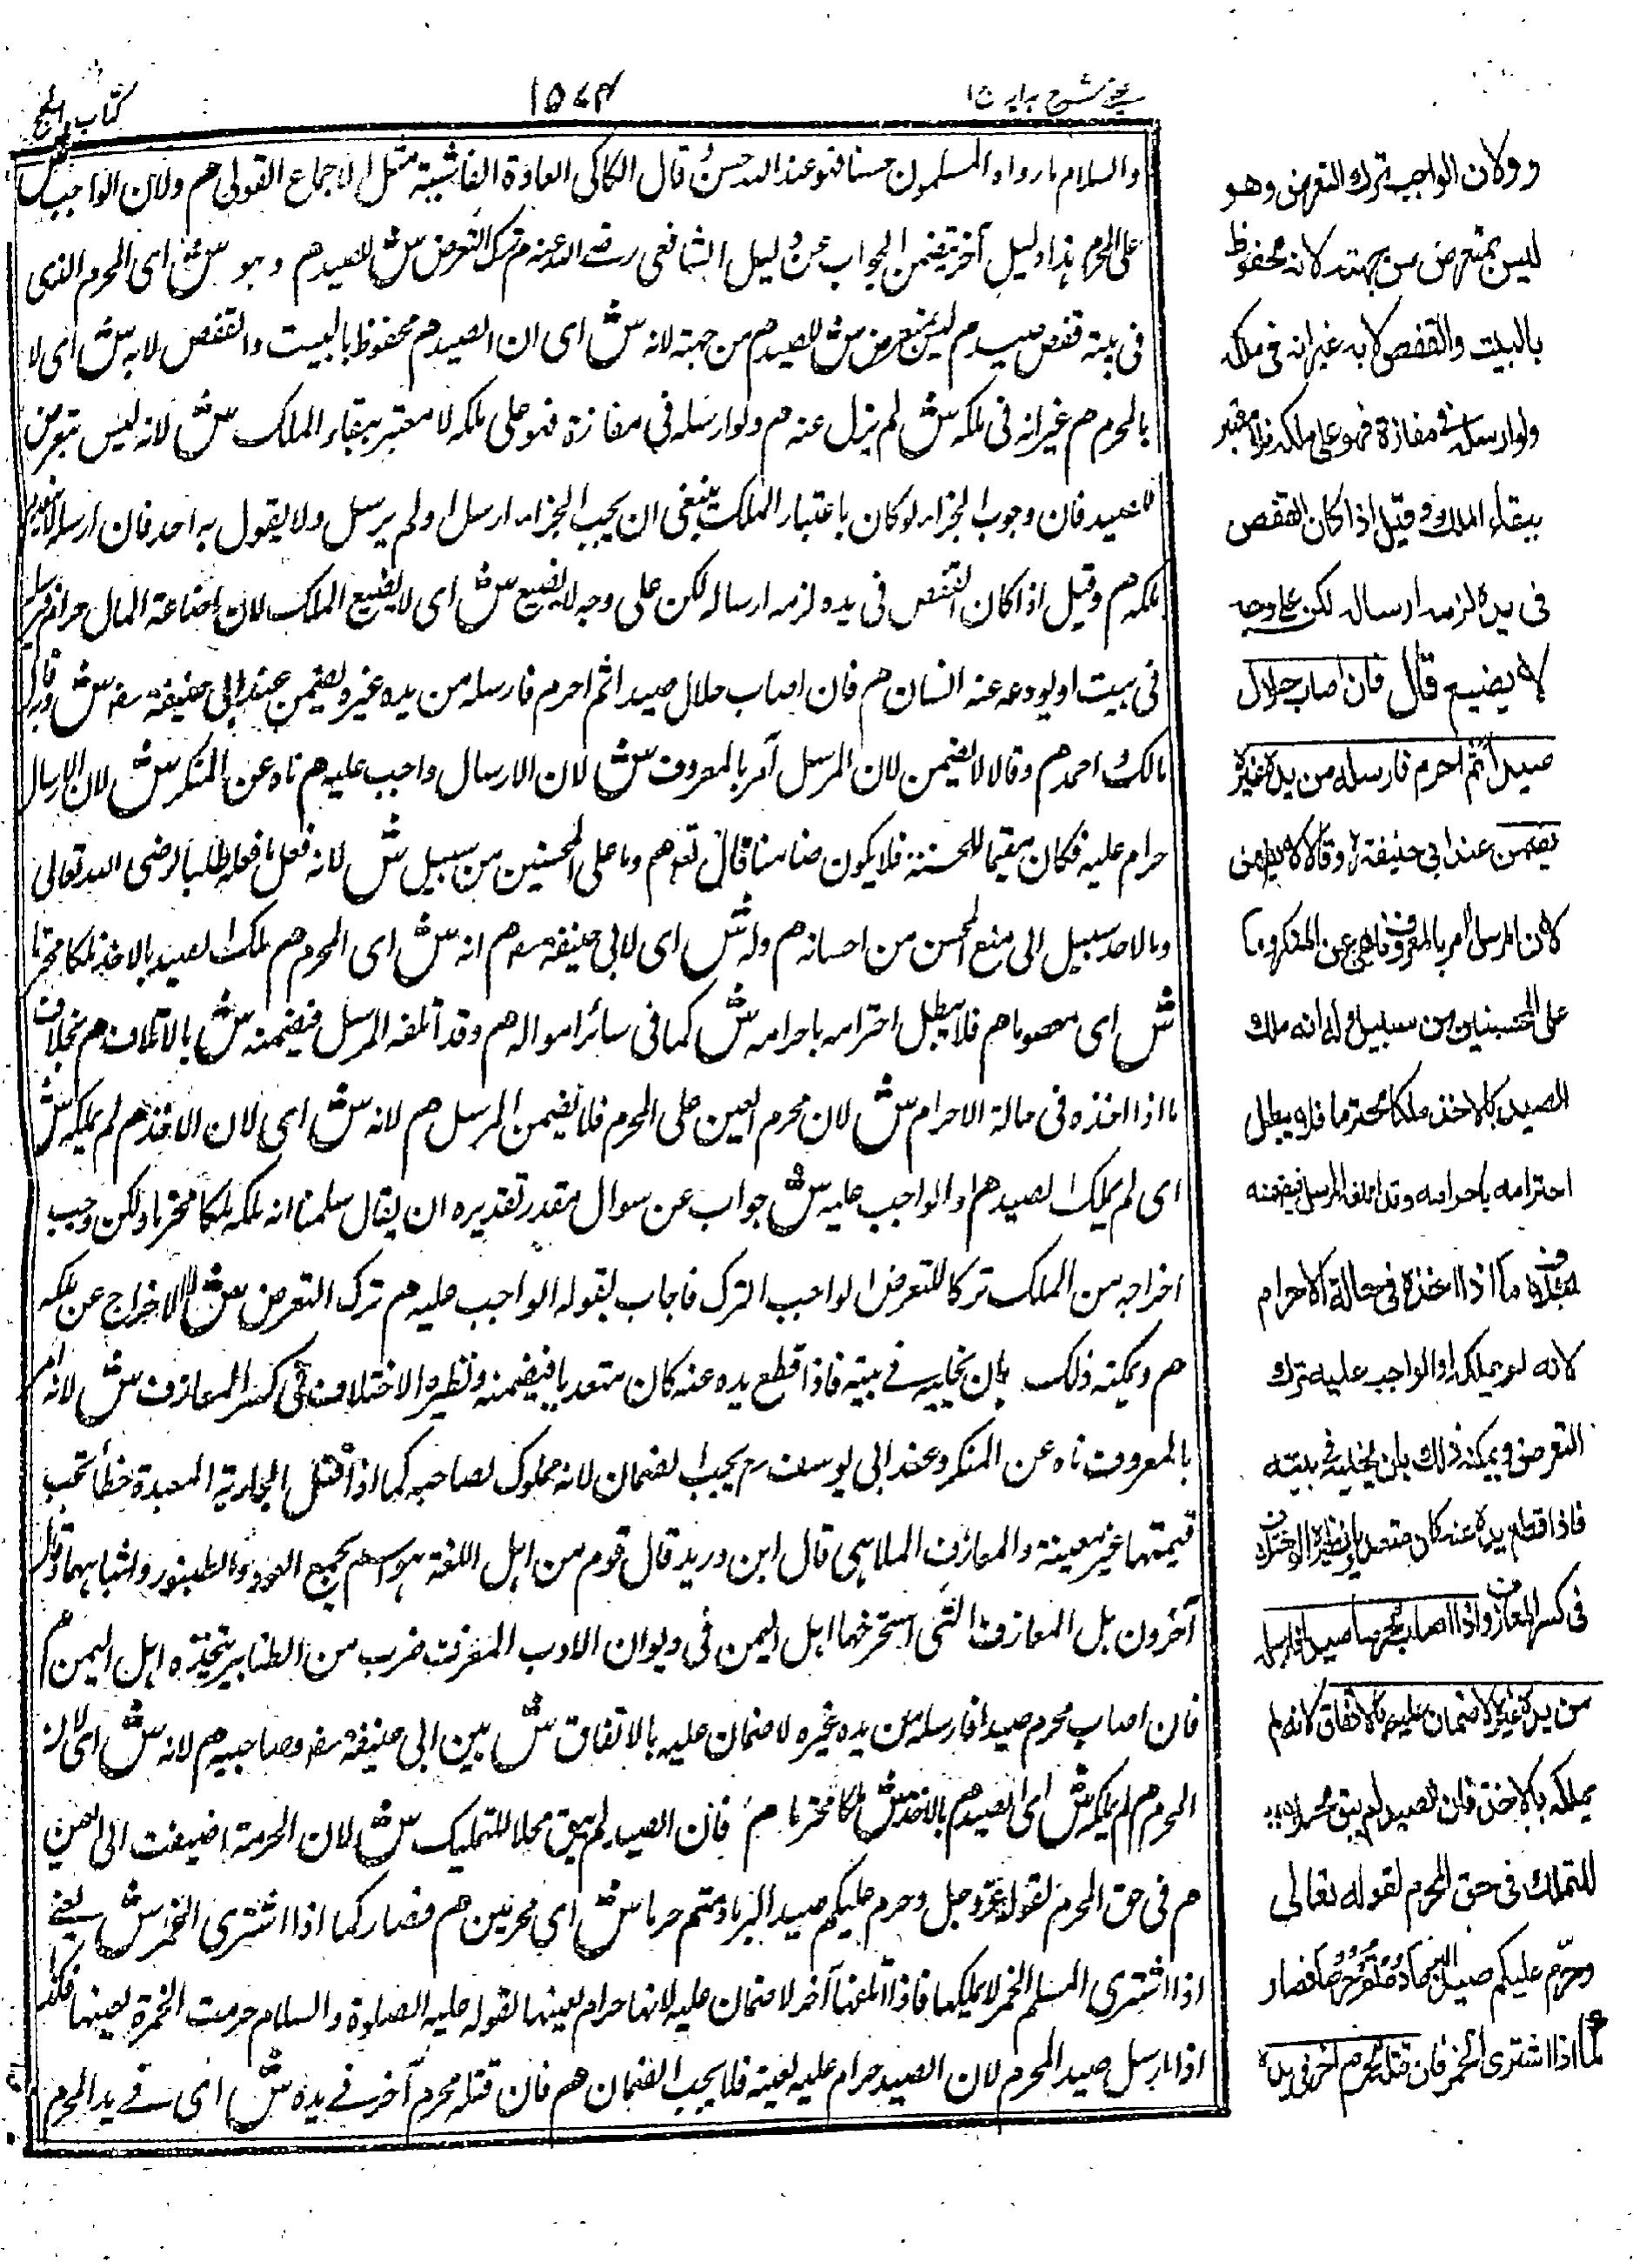 عینی شرح ہدایہ ج ۱
۱۵۷۴
کتاب الحج
والسلام ما رواه المسلمون حسنا فهو عند الله حسن قال الکاکی العادة الفاشیة مثل الاجماع القولی هم ولان الواجب ش
علی المحرم هذا دلیل آخر یتضمن الجواب عن دلیل الشافعی رضی الله عنه م ترک التعرض ش للصید هم وهو ش ای المحرم الذی
فی بیته قفص صید م لیس بمتعرض ش للصید م من جهته لانه ش ای ان الصید م محفوظ بالبیت والقفص لا به ش ای لا
بالمحرم هم غیر انه فی ملکه ش لم یزل عنه هم ولو ارسله فی مفازة فهو علی ملکه لا معتبر ببقاء الملک ش لانه لیس بتعرض
للصید فان وجوب الجزاء لو کان باعتبار الملک ینبغی ان یجب الجزاء ارسل او لم یرسل ولا یقول به احد فان ارساله لا یزیل
ملکه هم وقیل اذا کان القفص فی یده لزمه ارساله لکن علی وجه لا یضیع ش ای لا یضیع الملک لان اضاعة المال حرام
فی بیت او یودعه عند انسان م فان اصاب حلال صیدا ثم احرم فارسله من یده غیره یضمن عند ابی حنیفة ش وبه قال
مالک واحمد هم وقالا لا یضمن لان المرسل آمر بالمعروف ش لان الارسال واجب علیه هم ناه عن المنکر ش لان الارسال
حرام علیه فکان مقیما للحسنة فلا یکون ضامنا قال تعالی هم وما علی المحسنین من سبیل ش لانه فعل ما فعله طلبا لرضی الله تعالی
وما لاحد سبیل الی منع المحسن من احسانه هم وله ش ای لابی حنیفة هم انه ش ای المحرم هم ملک الصید بالاخذ ملکا محترما
ش ای معصوما هم فلا یبطل احترامه باحرامه ش کما فی سائر امواله هم وقد اتلفه المرسل فیضمنه ش بالاتلاف هم بخلاف
ما اذا اخذه فی حالة الاحرام ش لان محرم العین علی المحرم فلا یضمن المرسل هم لانه ش ای لان الاخذ هم لم یملکه ش
ای لم یملک الصید هم والواجب علیه ش جواب عن سوال مقدر تقدیره ان یقال سلمنا انه ملکه ملکا محترما ولکن وجب
اخراجه من الملک ترکا للتعرض الواجب الترک فاجاب بقوله الواجب علیه هم ترک التعرض ش لا الاخراج عن ملکه
هم ویمکنه ذلک بان یخلیه فی بیته فاذا قطع یده عنه کان متعدیا فیضمنه ونظیره الاختلاف فی کسر المعازف ش لانه امر
بالمعروف ناه عن المنکر وعند ابی یوسف رح یجب الضمان لانه مملوک لصاحبه کما اذا قتل الجاریة المعدة خطأ تجب
قیمتها غیر معینة والمعازف الملاهی قال ابن درید قال قوم من اهل اللغة هو اسم یجمع العود والطنبور واشباههما وقال
آخرون بل المعازف التی استخرجها اهل الیمن فی دیوان الادب المعزف ضرب من الطنابیر یتخذه اهل الیمن هم
فان اصاب محرم صیدا فارسله من یده غیره لا ضمان علیه بالاتفاق ش بین ابی حنیفة وصاحبیه هم لانه ش ای لان
المحرم هم لم یملکه ش ای الصید هم بالاخذ ش ملکا محترما هم فان الصید لم یبق محلا للتملیک ش لان الحرمة اضیفت الی العین
هم فی حق المحرم لقوله عزوجل وحرم علیکم صید البر ما دمتم حرما ش ای محرمین هم فصار کما اذا اشتری الخمر ش یعنی
اذا اشتری المسلم الخمر لا یملکها فاذا اتلفها آخر لا ضمان علیه لانها حرام لعینها لقوله علیه الصلوة والسلام حرمت الخمرة لعینها فکذا
اذا ارسل صید المحرم لان الصید حرام علیه لعینه فلا یجب الضمان هم فان قتله محرم آخر فی یده ش ای فی ید المحرم
و ولان الواجب ترک التعرض وهو
لیس بمتعرض من جهته لانه محفوظ
بالبیت والقفص لا به غیر انه فی ملکه
ولو ارسله فی مفازة فهو علی ملکه فلا معتبر
ببقاء الملک وقیل اذا کان القفص
فی یده لزمه ارساله لکن علی وجه
لا یضیع قال فان اصاب حلال
صیدا ثم احرم فارسله من یده غیره
یضمن عند ابی حنیفة رح وقالا لا یضمن
لان المرسل امر بالمعروف ناهی عن المنکر وما
علی المحسنین من سبیل وله انه ملک
الصید بالاخذ ملکا محترما فلا یبطل
احترامه باحرامه وقد اتلفه المرسل فیضمنه
بخلاف ما اذا اخذه فی حالة الاحرام
لانه لم یملکه والواجب علیه ترک
التعرض ویمکنه ذلک بان یخلیه فی بیته
فاذا قطع یده عنه کان متعدیا ونظیره الاختلاف
فی کسر المعازف واذا اصاب محرم صیدا فارسله
من یده غیره لا ضمان علیه بالاتفاق لانه لم
یملکه بالاخذ فان الصید لم یبق محلا
للتملک فی حق المحرم لقوله تعالی
وحرم علیکم صید البر ما دمتم حرما فصار
کما اذا اشتری الخمر فان قتله محرم اخر فی یده